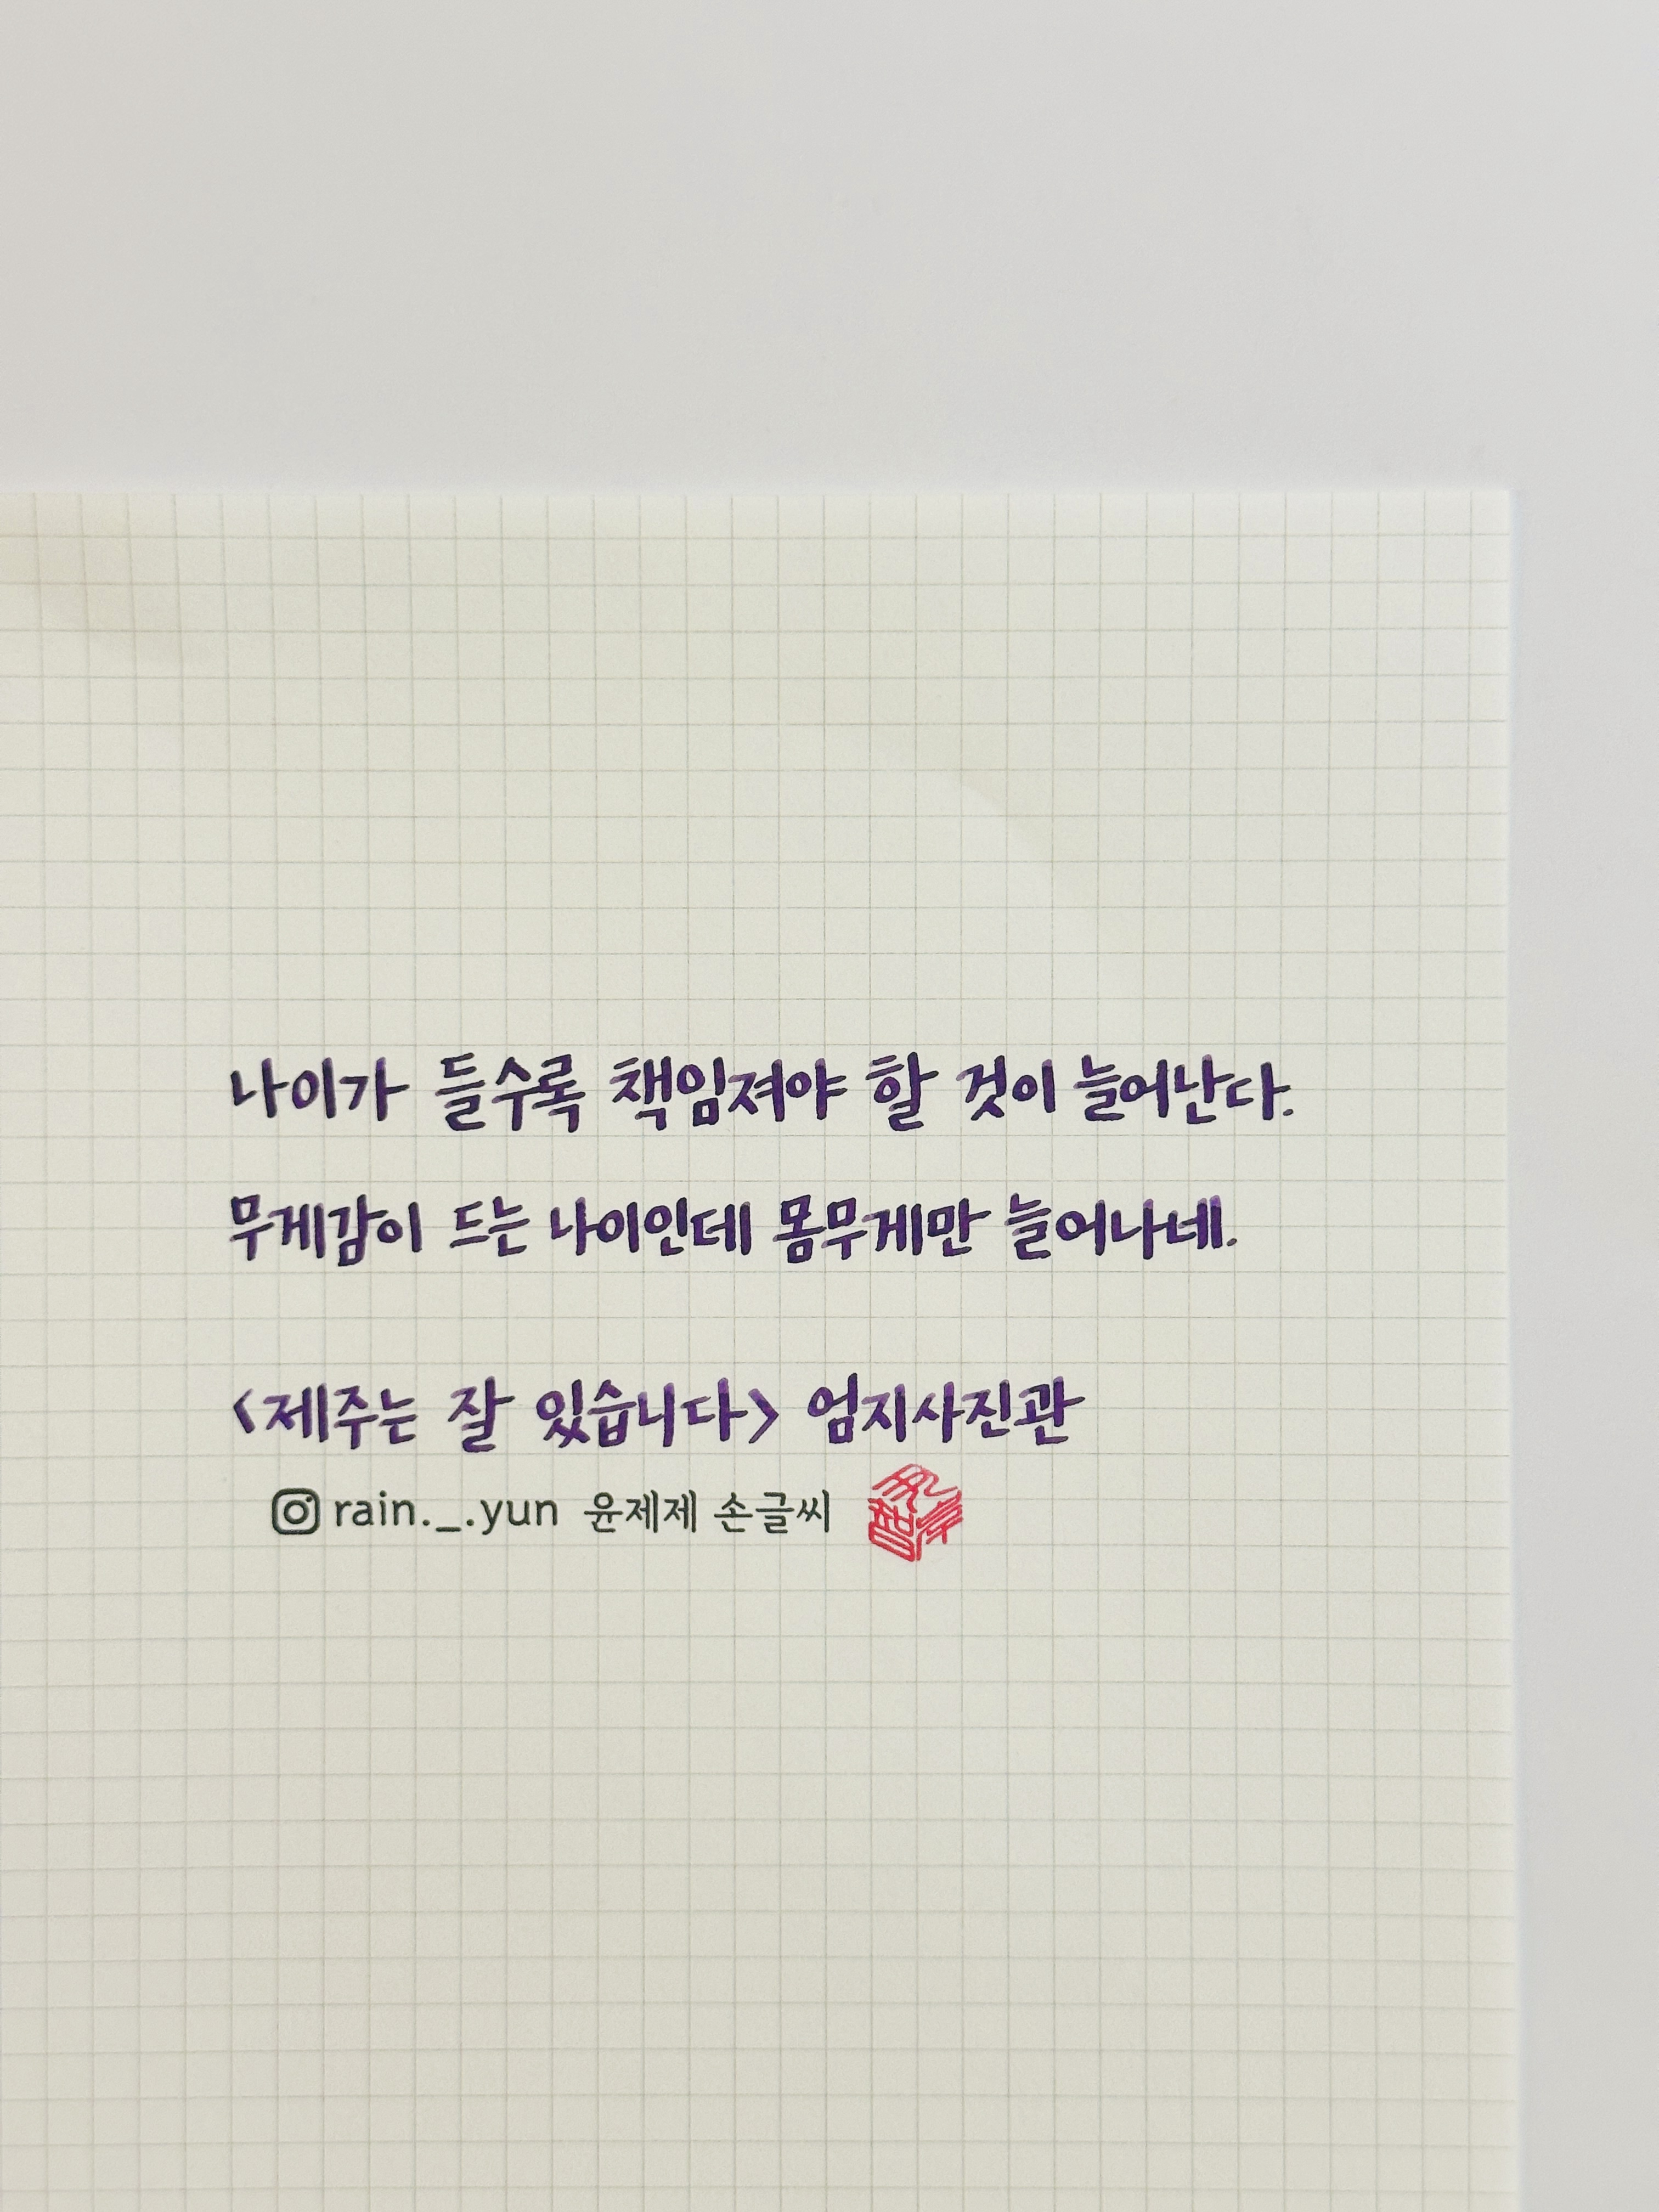 나이가 들수록 책임져야 할 것이 늘어난다.
무게감이 드는 나이인데 몸무게만 늘어나네.
<제주는 잘 있습니다> 엄지사진관
rain._.yun 윤제제 손글씨